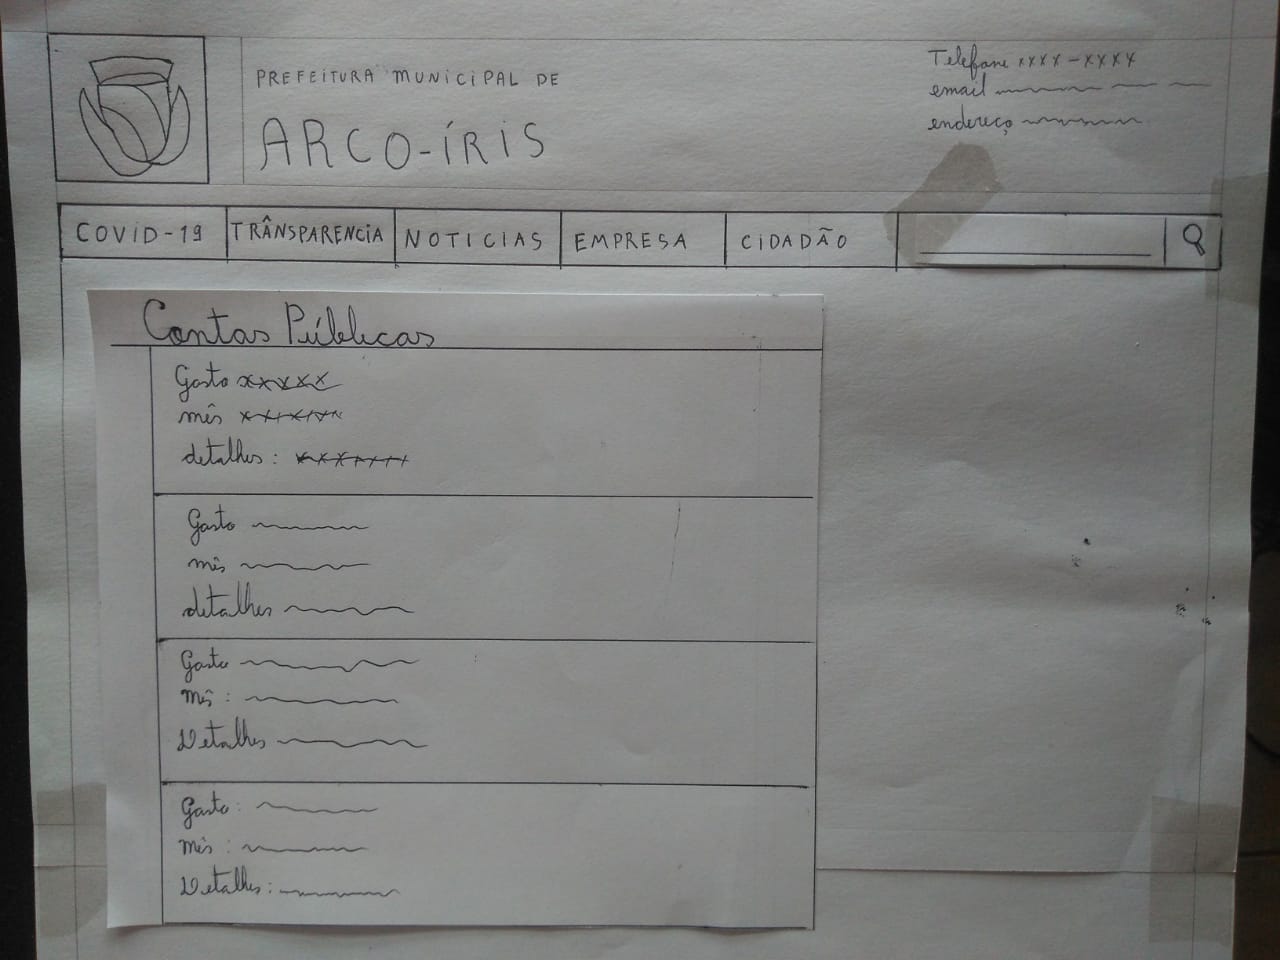 PREFEITURA MUNICIPAL DE
ARCO-ÍRIS
Telefone xxxx-xxxx
email
endereço
COVID-19 TRÂNSPARENCIA NOTICIAS EMPRESA CIDADÃO
Contas Públicas
Gasto xxxxx
mês xxxxxx
detalhes: xxxxxxx
Gasto
mês
detalhes
Gasto
mês:
Detalhes
Gasto:
mês:
Detalhes: